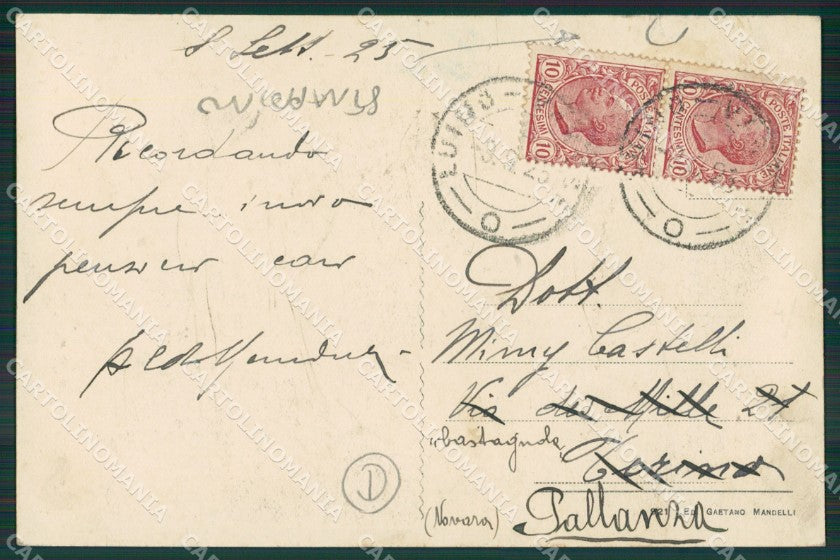 8 Sett. 25
Ricordando
sempre invio
pensieri cari
Dott.
Mimy Castelli
Via dei Mille 24
Castagnola
Torino
(Novara) Pallanza
D
LUINO
10 CENTESIMI 10
POSTE ITALIANE
CENTESIMI 10
POSTE ITALIANE
921 - Ed. GAETANO MANDELLI
CARTOLINOMANIA